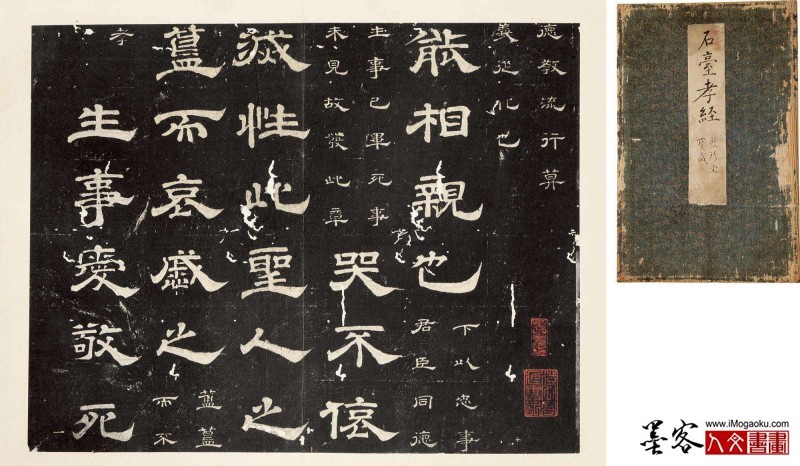 德教流行莫
義從化也
能相親也
下以忠事
君臣同德
生事已畢死事
未見故發此章
哭不偯
滅性此聖人之
簋而哀慼之
簠簋
而不
孝
生事愛敬死
石臺孝経
墨客
www.iMogaoku.com
人文書畫